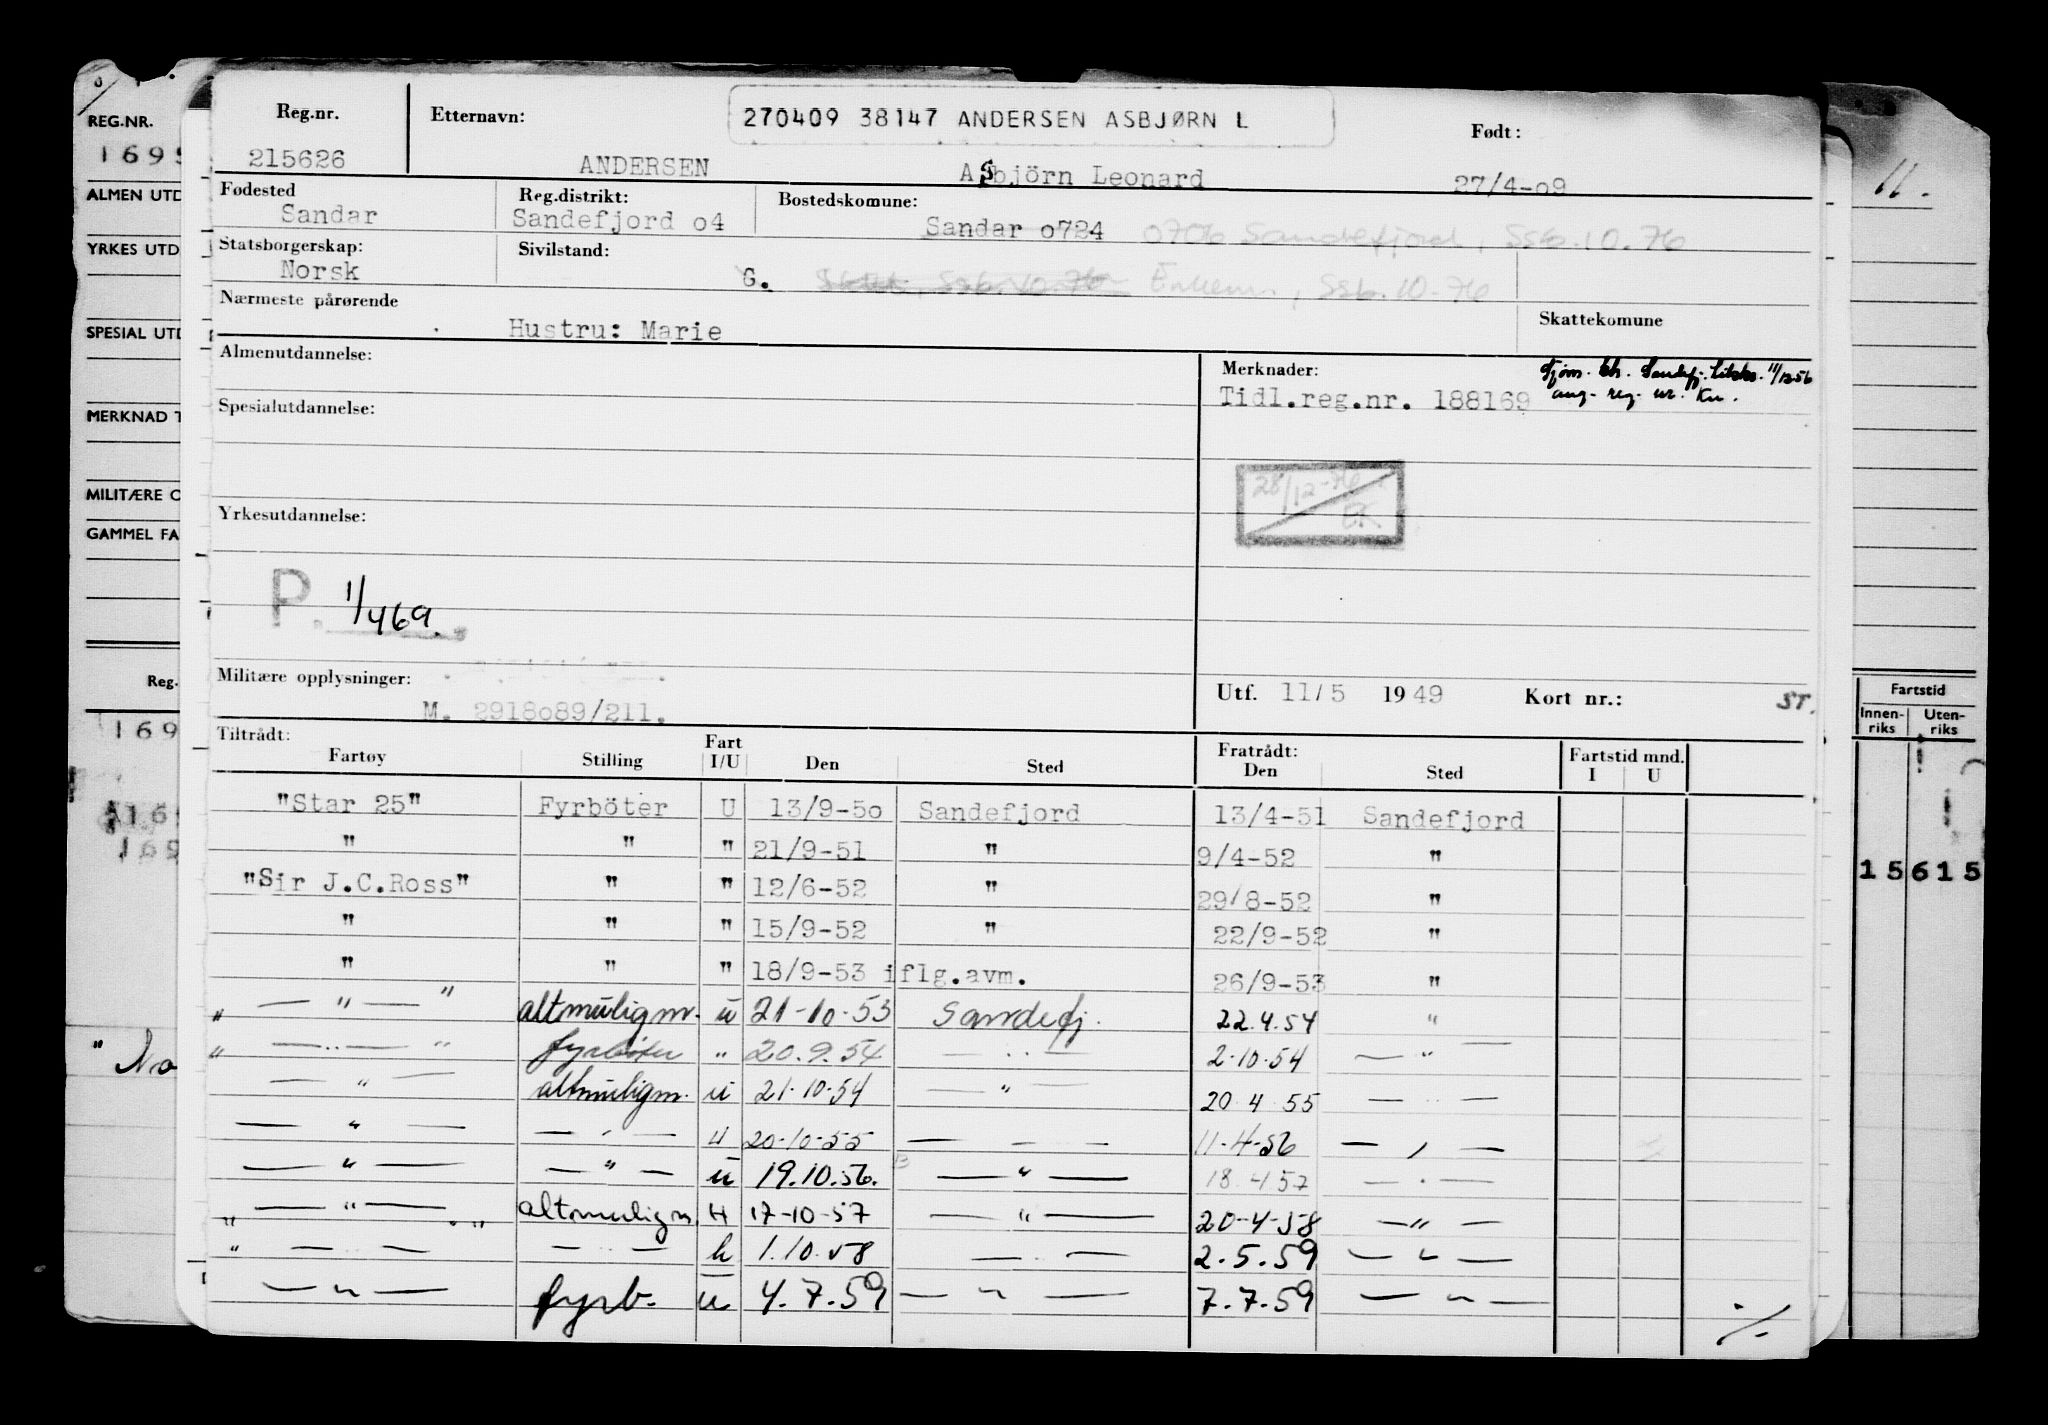 REG.NR.
1695
ALMEN UTD
YRKES UTD
SPESIAL UTD
MERKNAD T
MILITÆRE O
GAMMEL FA
Reg.
169
A16
169
" No
Reg.nr.
215626
Etternavn:
270409 38147 ANDERSEN ASBJØRN L
ANDERSEN Asbjörn Leonard
Født:
27/4-o9
Fødested
Sandar
Reg.distrikt:
Sandefjord o4
Bostedskomune:
Sandar o724 0706 Sandefjord, Ssb.10.76
Statsborgerskap:
Norsk
Sivilstand:
G. Ssb.10.76 Enkem, Ssb.10-76
Nærmeste pårørende
Hustru: Marie
Skattekomune
Almenutdannelse:
Spesialutdannelse:
Yrkesutdannelse:
P. 1/469.
Merknader:
Tidl.reg.nr. 188169
Sjøm. ktr. Sandefj. 11/12 56
ang. reg. nr.
28/12-76
EK
Militære opplysninger:
M. 2918o89/211.
Utf. 11/5 1949 Kort nr.: ST.
Tiltrådt: Fartøy Stilling Fart I/U Den Sted Fratrådt: Den Sted Fartstid mnd. I U
"Star 25" Fyrböter U 13/9-5o Sandefjord 13/4-51 Sandefjord
" " " 21/9-51 " 9/4-52 "
"Sir J.C.Ross" " " 12/6-52 " 29/8-52 "
" " " 15/9-52 " 22/9-52 "
" " " 18/9-53 iflg.avm. 26/9-53 "
" — " — " altmuligm. u 21-10-53 Sandefj. 22.4.54 "
" — " — " fyrböter " 20.9.54 — " — 2-10-54 — " —
— " — altmuligm. u 21-10-54 — " — 20 4 55 — " —
— " — — " — u 20-10-55 — " — 11-4-56 — " —
— " — — " — u 19.10.56. — " — 18 4 57 — " —
" — " — " altmuligm. u 17-10-57 — " — 20-4-58 — " —
" — " — — " — u 1.10.58 — " — 2.5.59 — " —
— " — fyrb. u 4.7.59 — " — 7.7.59 — " —
./.
11.
Fartstid
Innen-riks
Uten-riks
15615